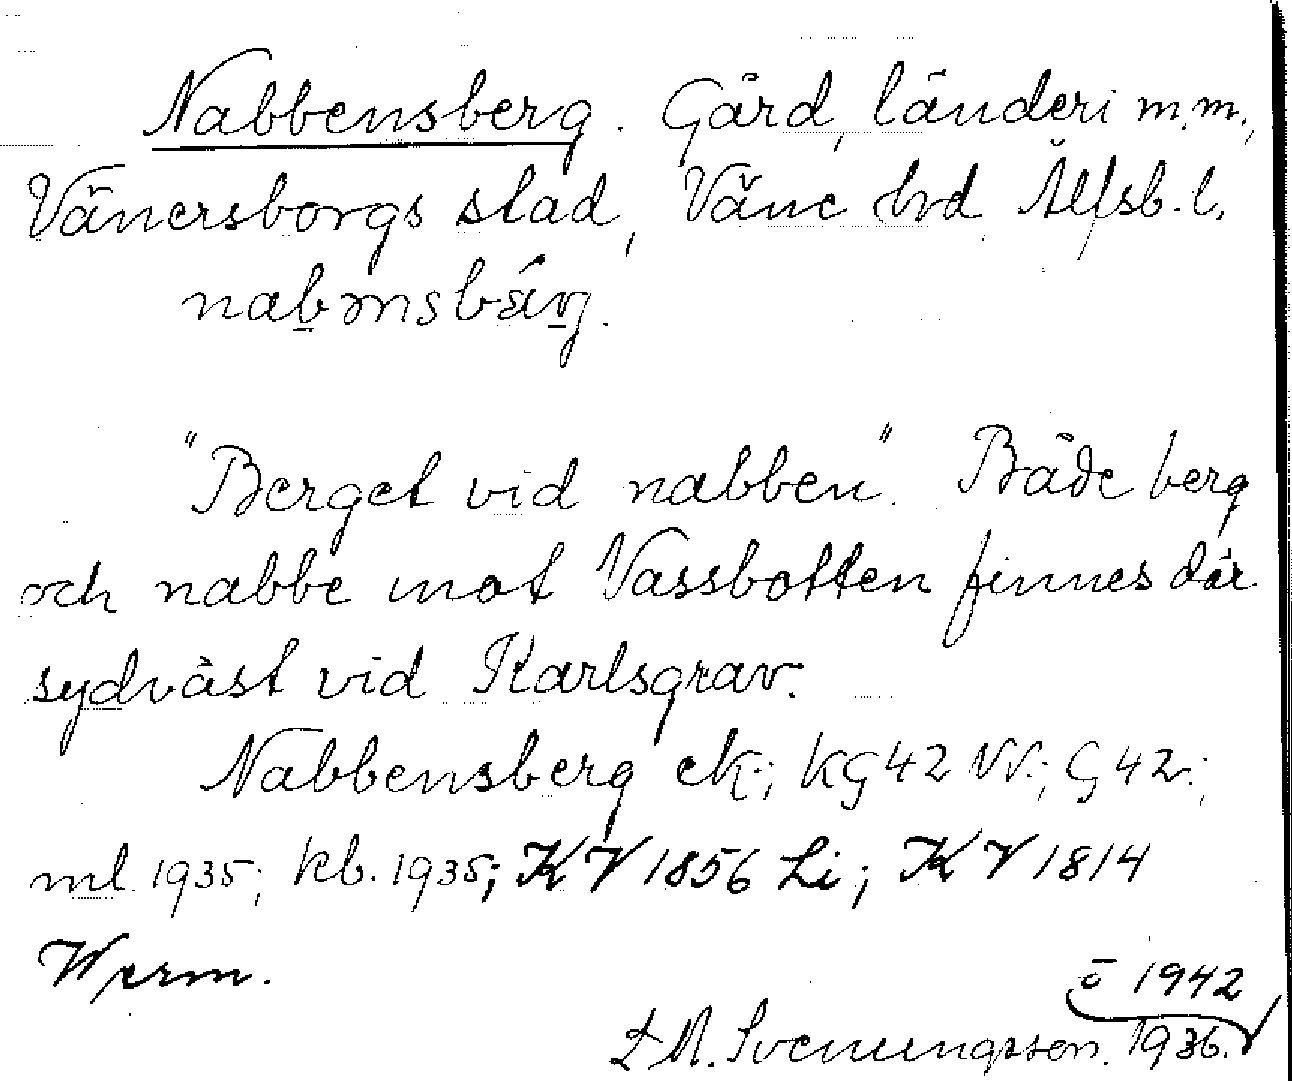 Nabbensberg. Gård, länderi m.m.,
Vänersborgs stad, Väne hd Älfsb. l.
"Berget vid nabben". Både berg
och nabbe mot Vassbotten finnes där
sydväst vid Karlsgrav.
Nabbensberg ek.; KG 42 NV.; G 42.;
ml. 1935; kb. 1935; KV 1856 Li; KV 1814
Werm.
ö 1942
D. A. Svenungsson. 1936.